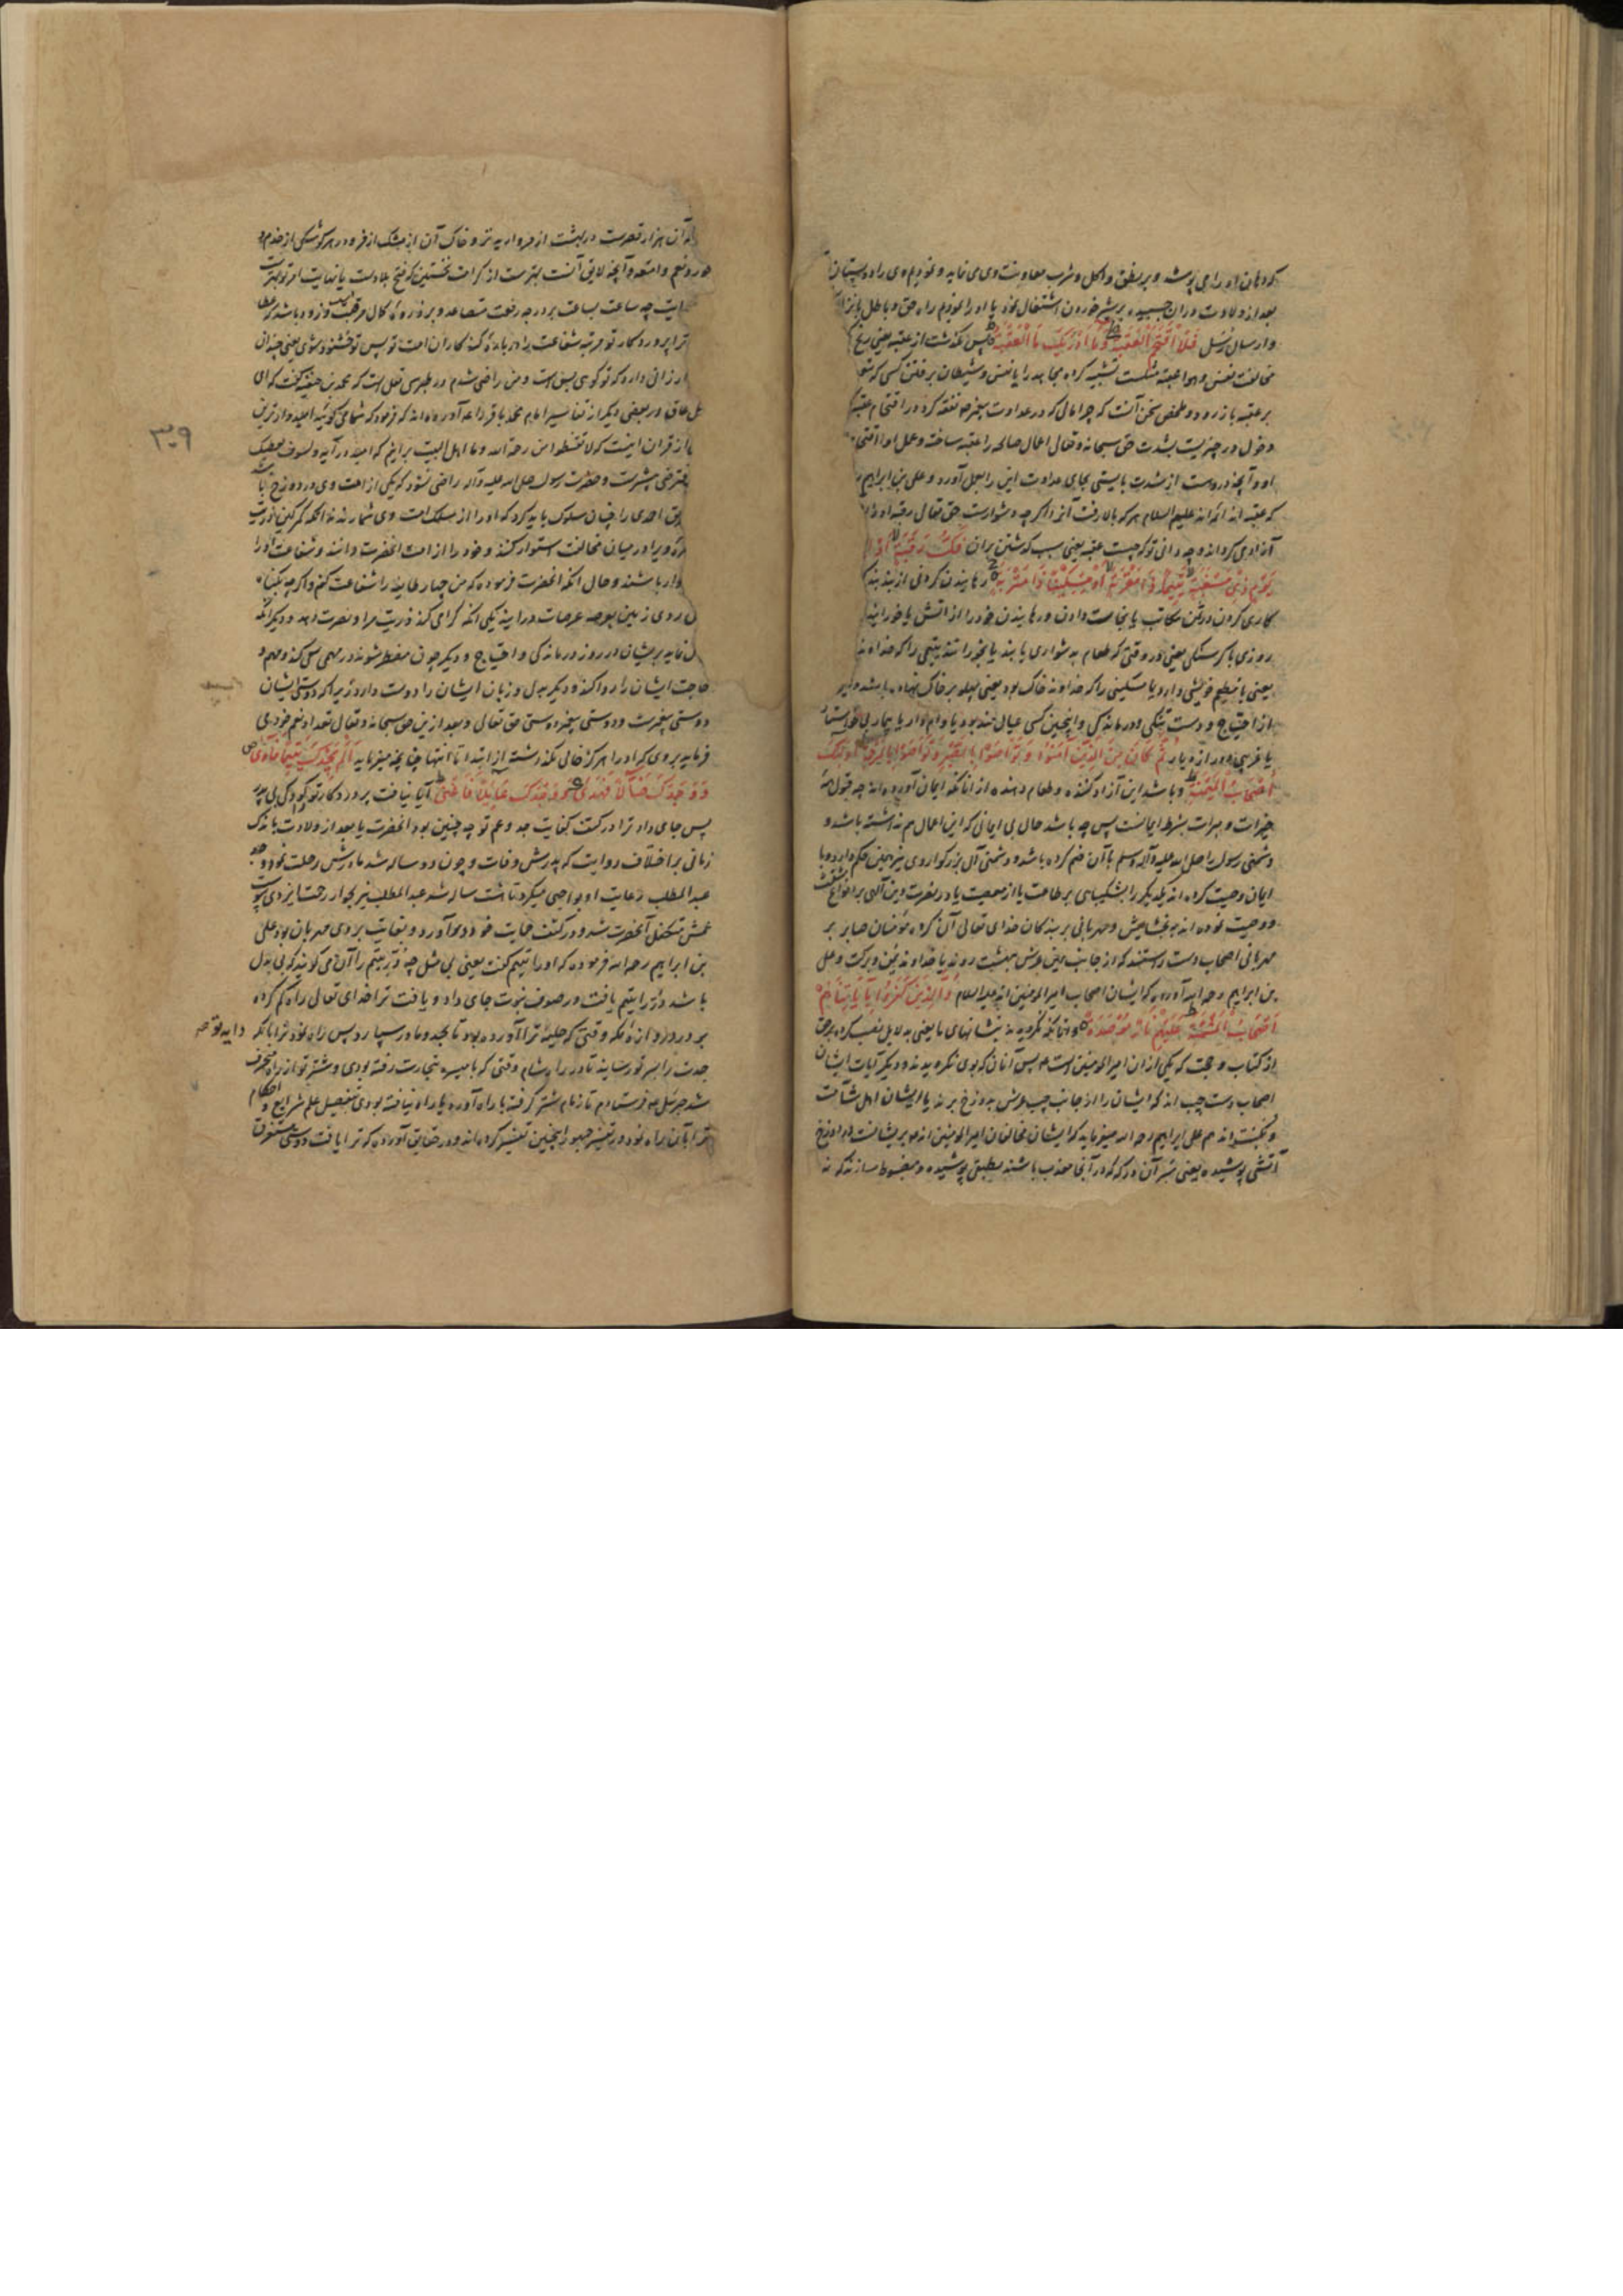 که دهان او را می پوشد و بر نطق و اکل و شرب معاونت وی می نماید و نمودیم وی را دو پستان
بعد از ولادت در ان چسبیده بر شیر خوردن اشتغال نمود یا او را نمودیم راه حق و باطل
و ارسال رسل فَلَا اقْتَحَمَ الْعَقَبَةَ وَمَا أَدْرَاكَ مَا الْعَقَبَةُ پس نگذشت از عقبه یعنی رنج
مخالفت نفس و هوا عقبه تشبیه کرده مجاهد را با نفس و شیطان برفتن کسی که
بر عقبه بازرود و ملخص سخن آنست که چرا مالی که در عداوت پیغمبر نفقه کرد در اقتحام عقبه
دخول در چیزیست بشدت حق سبحانه و تعالی اعمال صالحه را عقبه ساخته و عمل او را اقتحام
او و آنچه دروست از شدت بایستی بجای عداوت این را بعمل آورد و علی بن ابراهیم
که عقبه ائمه اند علیهم السلام هر که بالا رفت آنرا اگر چه دشوارست حق تعالی رقبه او
آزادی کرداند و چه دانی تو که چیست عقبه یعنی سبب گذشتن بران فَكُّ رَقَبَةٍ أَوْ
يَوْمٍ ذِي مَسْغَبَةٍ يَتِيمًا ذَا مَقْرَبَةٍ أَوْ مِسْكِينًا ذَا مَتْرَبَةٍ رهانیدن کردنی از بند بندگی
کاری کردن در ثمن مکاتب یا نجات دادن و رهانیدن خود را از اتش یا خورانیدن
روزی با گرسنگی یعنی در وقتی که طعام به شواری یابند یتیمی را که خداوند
یعنی با یتیم خویشی دارد یا مسکینی را که خداوند خاک بود یعنی پهلو بر خاک نهاده باشد
از احتیاج و دست تنگی و درماندگی و اینچنین کسی عیال مند بود یا وام دار یا بیمار بی
یا غریبی دور از دیار ثُمَّ كَانَ مِنَ الَّذِينَ آمَنُوا وَتَوَاصَوْا بِالصَّبْرِ وَتَوَاصَوْا بِالْمَرْحَمَةِ أُولَئِكَ
أَصْحَابُ الْمَيْمَنَةِ و باشد این آزاد کننده و طعام دهنده از انانکه ایمان آورده اند چه قبول
خیرات و مبرات بشرط ایمانست پس چه باشد حال بی ایمانی که این اعمال هم نداشته باشد و
دشمنی رسول را صلی الله علیه وآله وسلم با آن ضم کرده باشد و دشمنی آل بزرگوار وی نیز همین حکم دارد و با
ایمان وصیت کرده اند یکدیگر را بشکیبایی بر طاعت یا از معصیت یا در نصرت دین الهی بر انواع
و وصیت نموده اند به بخشایش و مهربانی بر بندگان خدای تعالی آن گروه مؤمنان صابر بر
مهربانی اصحاب دست راستند که از جانب یمین عرش ببهشت روند یا خداوند یمن و برکت و علی
بن ابراهیم رحمه الله آورده که ایشان اصحاب امیر المومنین اند علیه السلام وَالَّذِينَ كَفَرُوا بِآيَاتِنَا هُمْ
أَصْحَابُ الْمَشْأَمَةِ عَلَيْهِمْ نَارٌ مُؤْصَدَةٌ و انانکه نگرویدند بنشانهای ما یعنی به دلایل نصب کرده بر حق
از کتاب و حجت که یکی از ان امیر المومنین است پس آنانی که بوی نگرویدند و دیگر آیات ایشان
اصحاب دست چپ اند که ایشان را از جانب چپ عرش بدوزخ برند یا ایشان اهل شآمت
و نکبتند هم علی بن ابراهیم رحمه الله میفرماید که ایشان مخالفان امیر المومنین اند و بریشانست در دوزخ
آتشی پوشیده یعنی سر آن درکه که در آنجا معذب باشند بطبق پوشیده و مضبوط سازند که نه
آن هزار قصرست در بهشت از مروارید تر و خاک آن از مشک اذفر و در هر کوشکی از خدم و
حور و نعم و امتعه و آنچه لایق آنست بهترست از کرامت نخستین که فتح بلادست یا نهایت امر تو بهترست
چه ساعت بساعت بر درجه رفعت متصاعد و بر ذروه کمال مرقبت و زود باشد که عطا
ترا پروردگار تو مرتبه شفاعت در باره گنه کاران امت تو پس تو خشنود شوی یعنی چندان
ارزانی دارد که تو گوی بس است و من راضی شدم و در طبرسی نقل است که محمد بن حنفیه گفت که ای
اهل عراق و در بعضی دیگر از تفاسیر امام محمد باقر را آورده اند که فرمود که شما می گوئید امیدوارترین
از قران اینست که لا تقنطوا من رحمة الله و ما اهل البیت برانیم که امید در آیه ولسوف یعطیک
فترضی بیشترست و حضرت رسول صلی الله علیه وآله راضی نشود که یکی از امت وی در دوزخ باشد
پس احدی را چنان سلوک باید کرد که او را از مسلک امت وی شمارند نه انکه
و یرا در میان مخالفت استوار کنند و خود را از امت انحضرت دانند و شفاعت او را
باشند و حال انکه انحضرت فرموده که من چهار طایفه را شفاعت کنم و اگر چه بگناه
روی زمین بعرصه عرصات درایند یکی انکه گرامی کند ذریت مرا و نصرت دهد و دیگر انکه
نماید بریشان در روز درماندگی و احتیاج و دیگر چون مضطر شوند در مهمی سعی کند و مهم و
حاجت ایشان را روا کند و دیگر به دل و زبان ایشان را دوست دارد زیرا که دوستی ایشان
دوستی پیغمبرست و دوستی پیغمبر دوستی حق تعالی و بعد ازین حق سبحانه و تعالی تعداد نعم خود می
فرماید بروی که او را هرگز خالی نگذاشته از ابتدا تا انتها چنانچه میفرماید أَلَمْ يَجِدْكَ يَتِيمًا فَآوَى
وَوَجَدَكَ ضَالًّا فَهَدَى وَوَجَدَكَ عَائِلًا فَأَغْنَى آیا نیافت پروردگار تو کودکی بی پدر
پس جای داد ترا در کنف کفایت جد و عم تو چه چنین بود انحضرت یا بعد از ولادت باندک
زمانی بر اختلاف روایت که پدرش وفات و چون دو ساله شد مادرش رحلت نمود و جد
عبد المطلب رعایت او بواجبی میکرد تا هشت ساله شد عبد المطلب نیز بجوار رحمت ایزدی پیوست
عمش متکفل آنحضرت شد و در کنف حمایت خود در آورد و بغایت بر وی مهربان بود علی
بن ابراهیم رحمه الله فرموده که او را یتیم گفت یعنی بی مثل چه در یتیم را آن می گویند که بی بدل
باشد در یتیم یافت و در صدف نبوت جای داد و یافت ترا خدای تعالی راه گم کرده
بر در دروازه مکه وقتی که حلیمه ترا آورده بود تا بجد و مادر سپارد پس راه نمود ترا بآنکه
جدت را بسر تو رسانید تا در راه شام وقتی که با میسره بتجارت رفته بودی و شتر تو از راه منحرف
شد جبرئیل فرستادم تا زمام شتر گرفته با راه آورد یا راه نیافته بودی بتفصیل علم شرایع و احکام
ترا بآن راه نمود و در تفسیر جمهور اینچنین تفسیر کرده اند و در حقایق آورده که ترا یافت دوستی مستغرق
۳۰۹